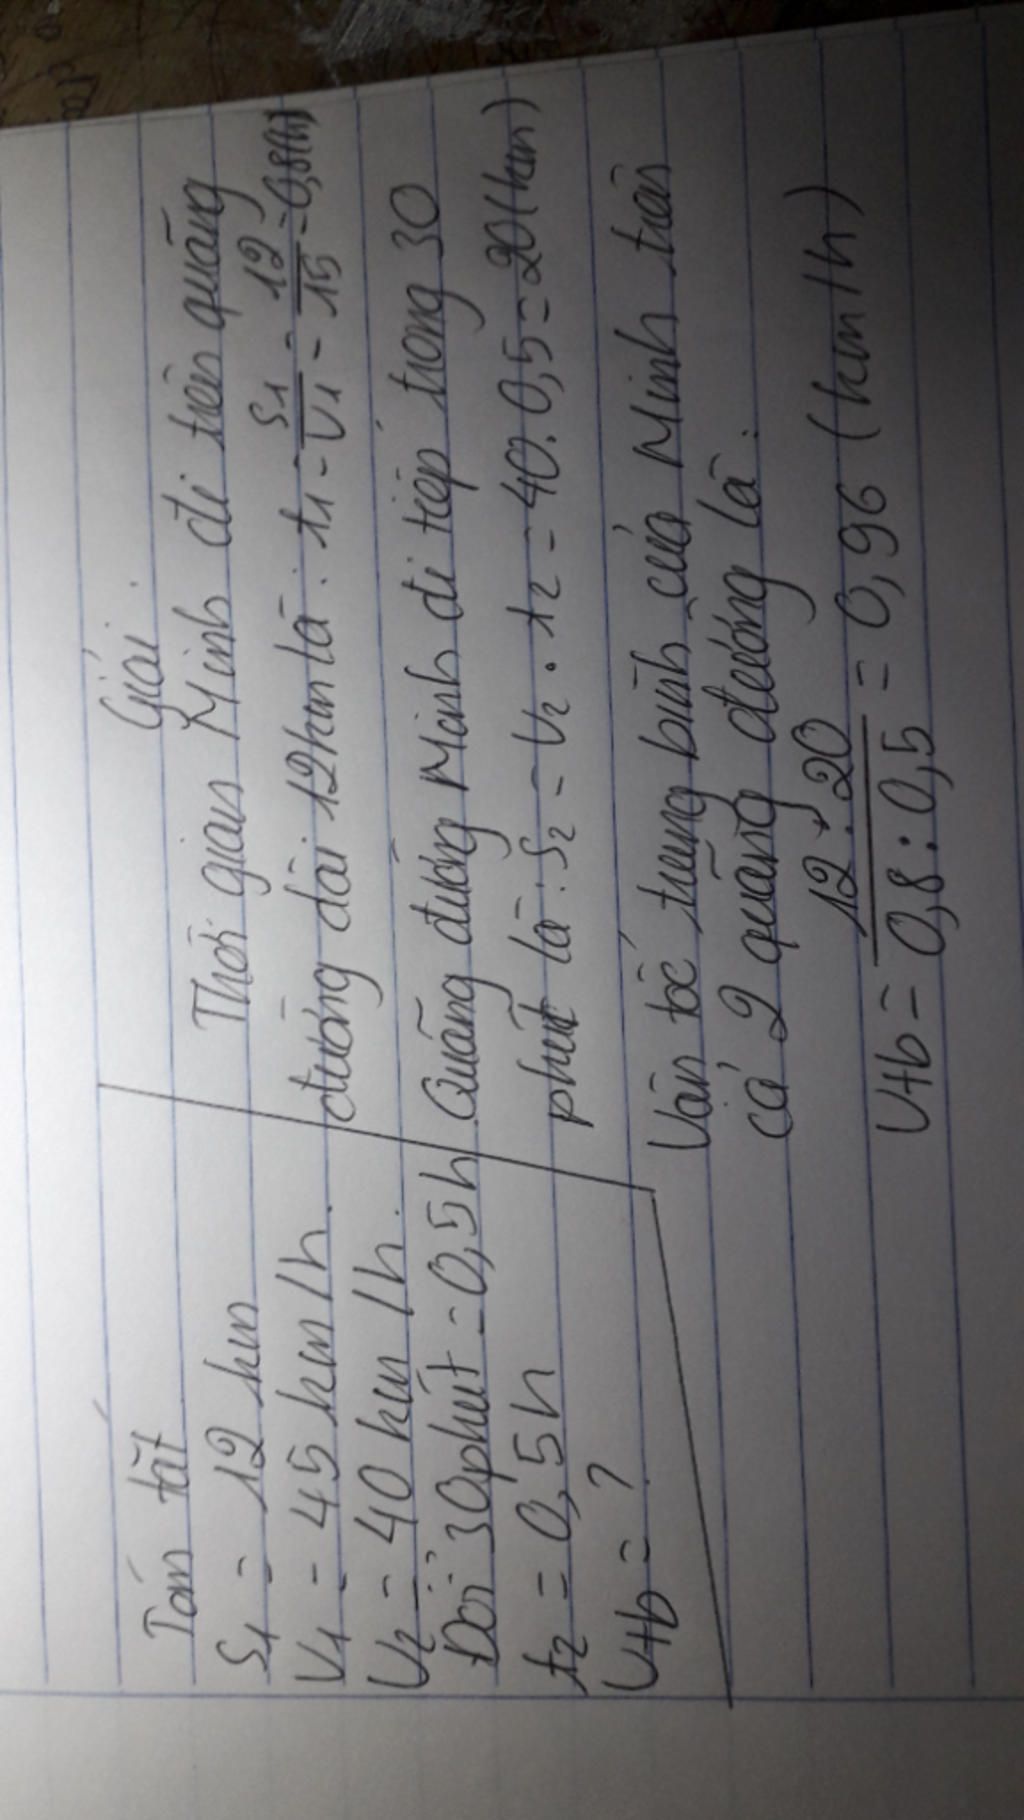 Tóm tắt
S1 = 12 km
V1 = 45 km/h.
V2 = 40 km/h.
Đổi 30phút = 0,5h
t2 = 0,5h
Vtb = ?
Giải.
Thời gian Minh đi trên quãng
đường dài 12km là: t1 = S1/V1 = 12/15 = 0,8(h)
Quãng đường Minh đi tiếp trong 30
phút là: S2 = V2 . t2 = 40. 0,5 = 20(km)
Vận tốc trung bình của Minh trên
cả 2 quãng đường là:
Vtb = 12 + 20 / 0,8 : 0,5 = 0,96 (km/h)